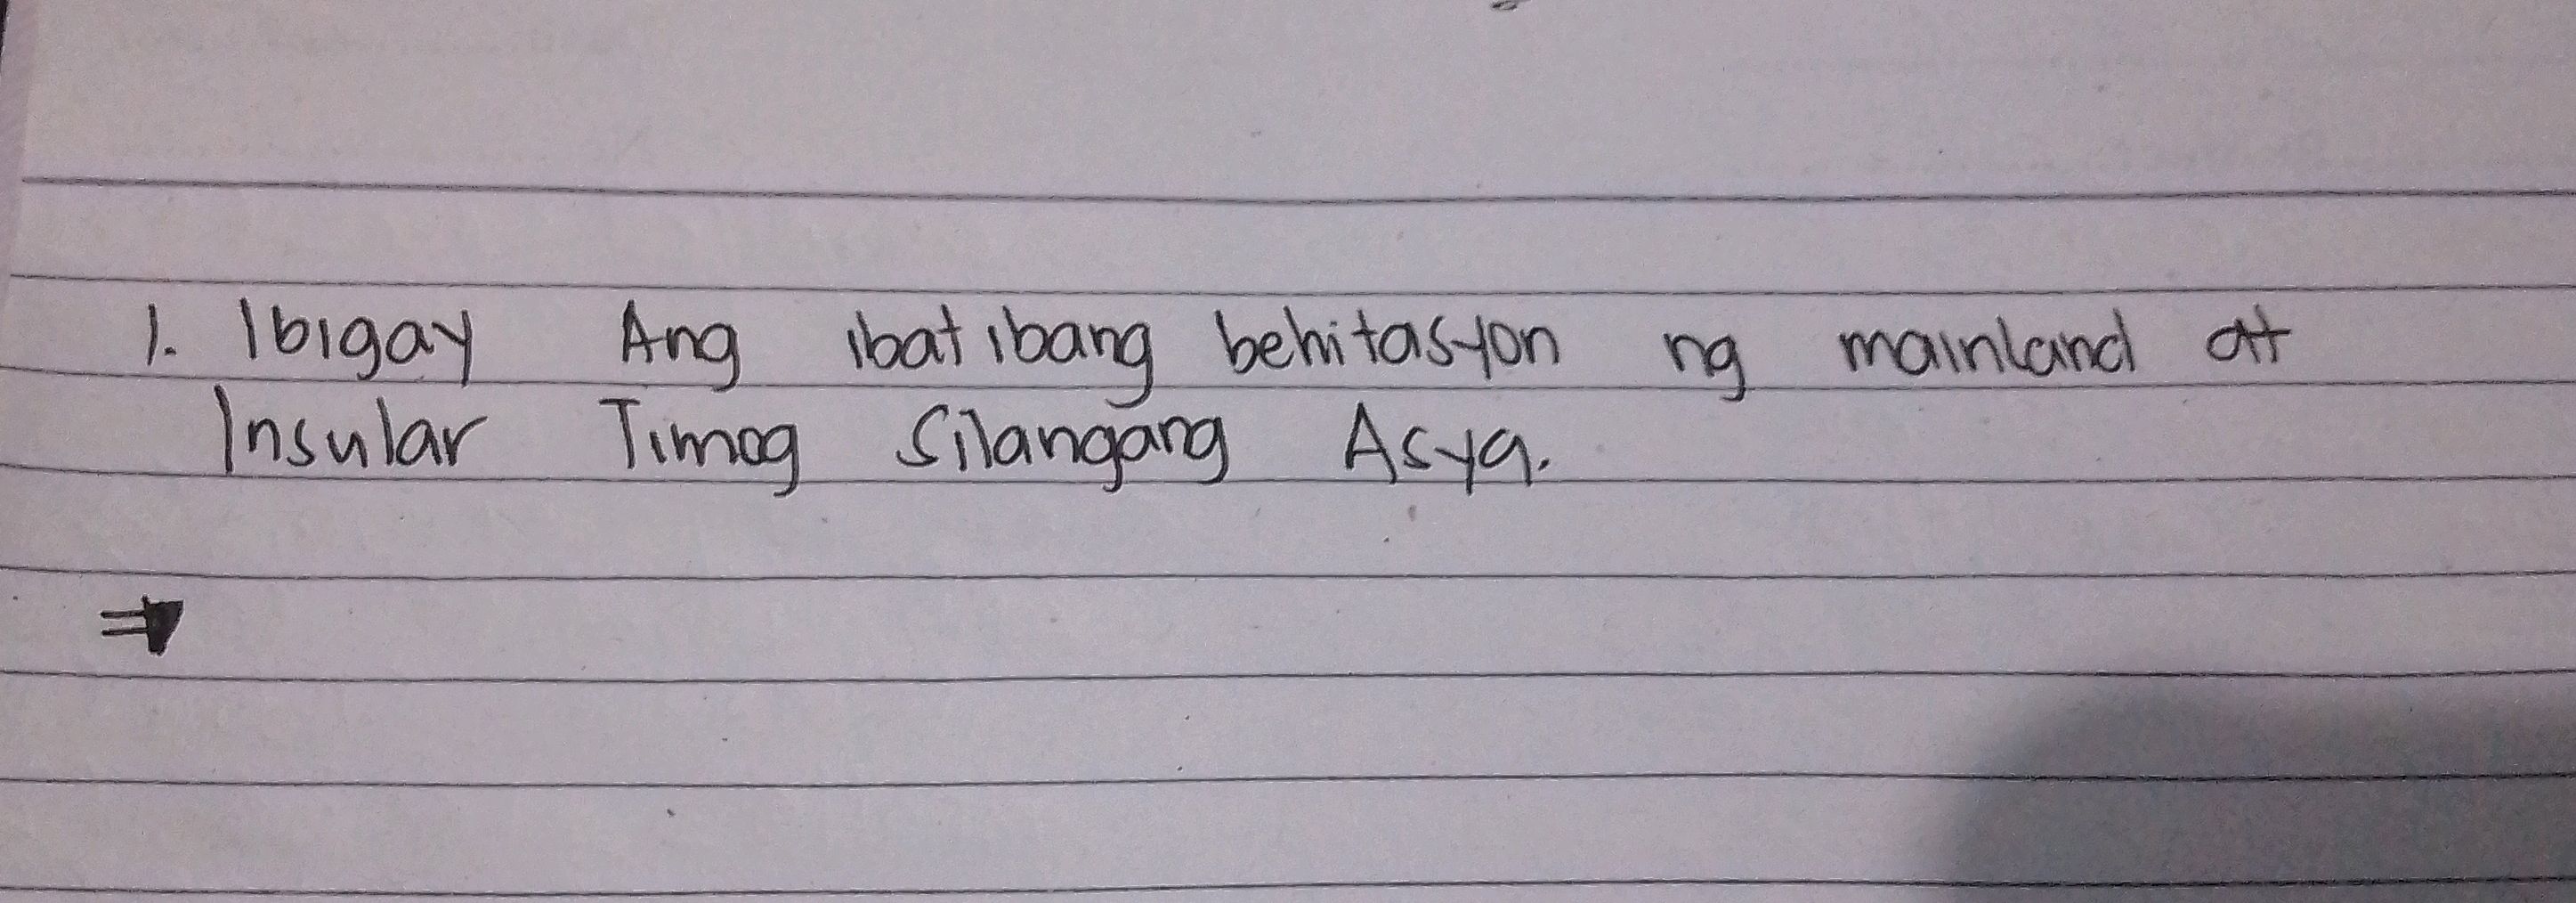 1. Ibigay Ang ibat ibang behitasyon ng mainland at
Insular Timog Silangang Asya.
⇒